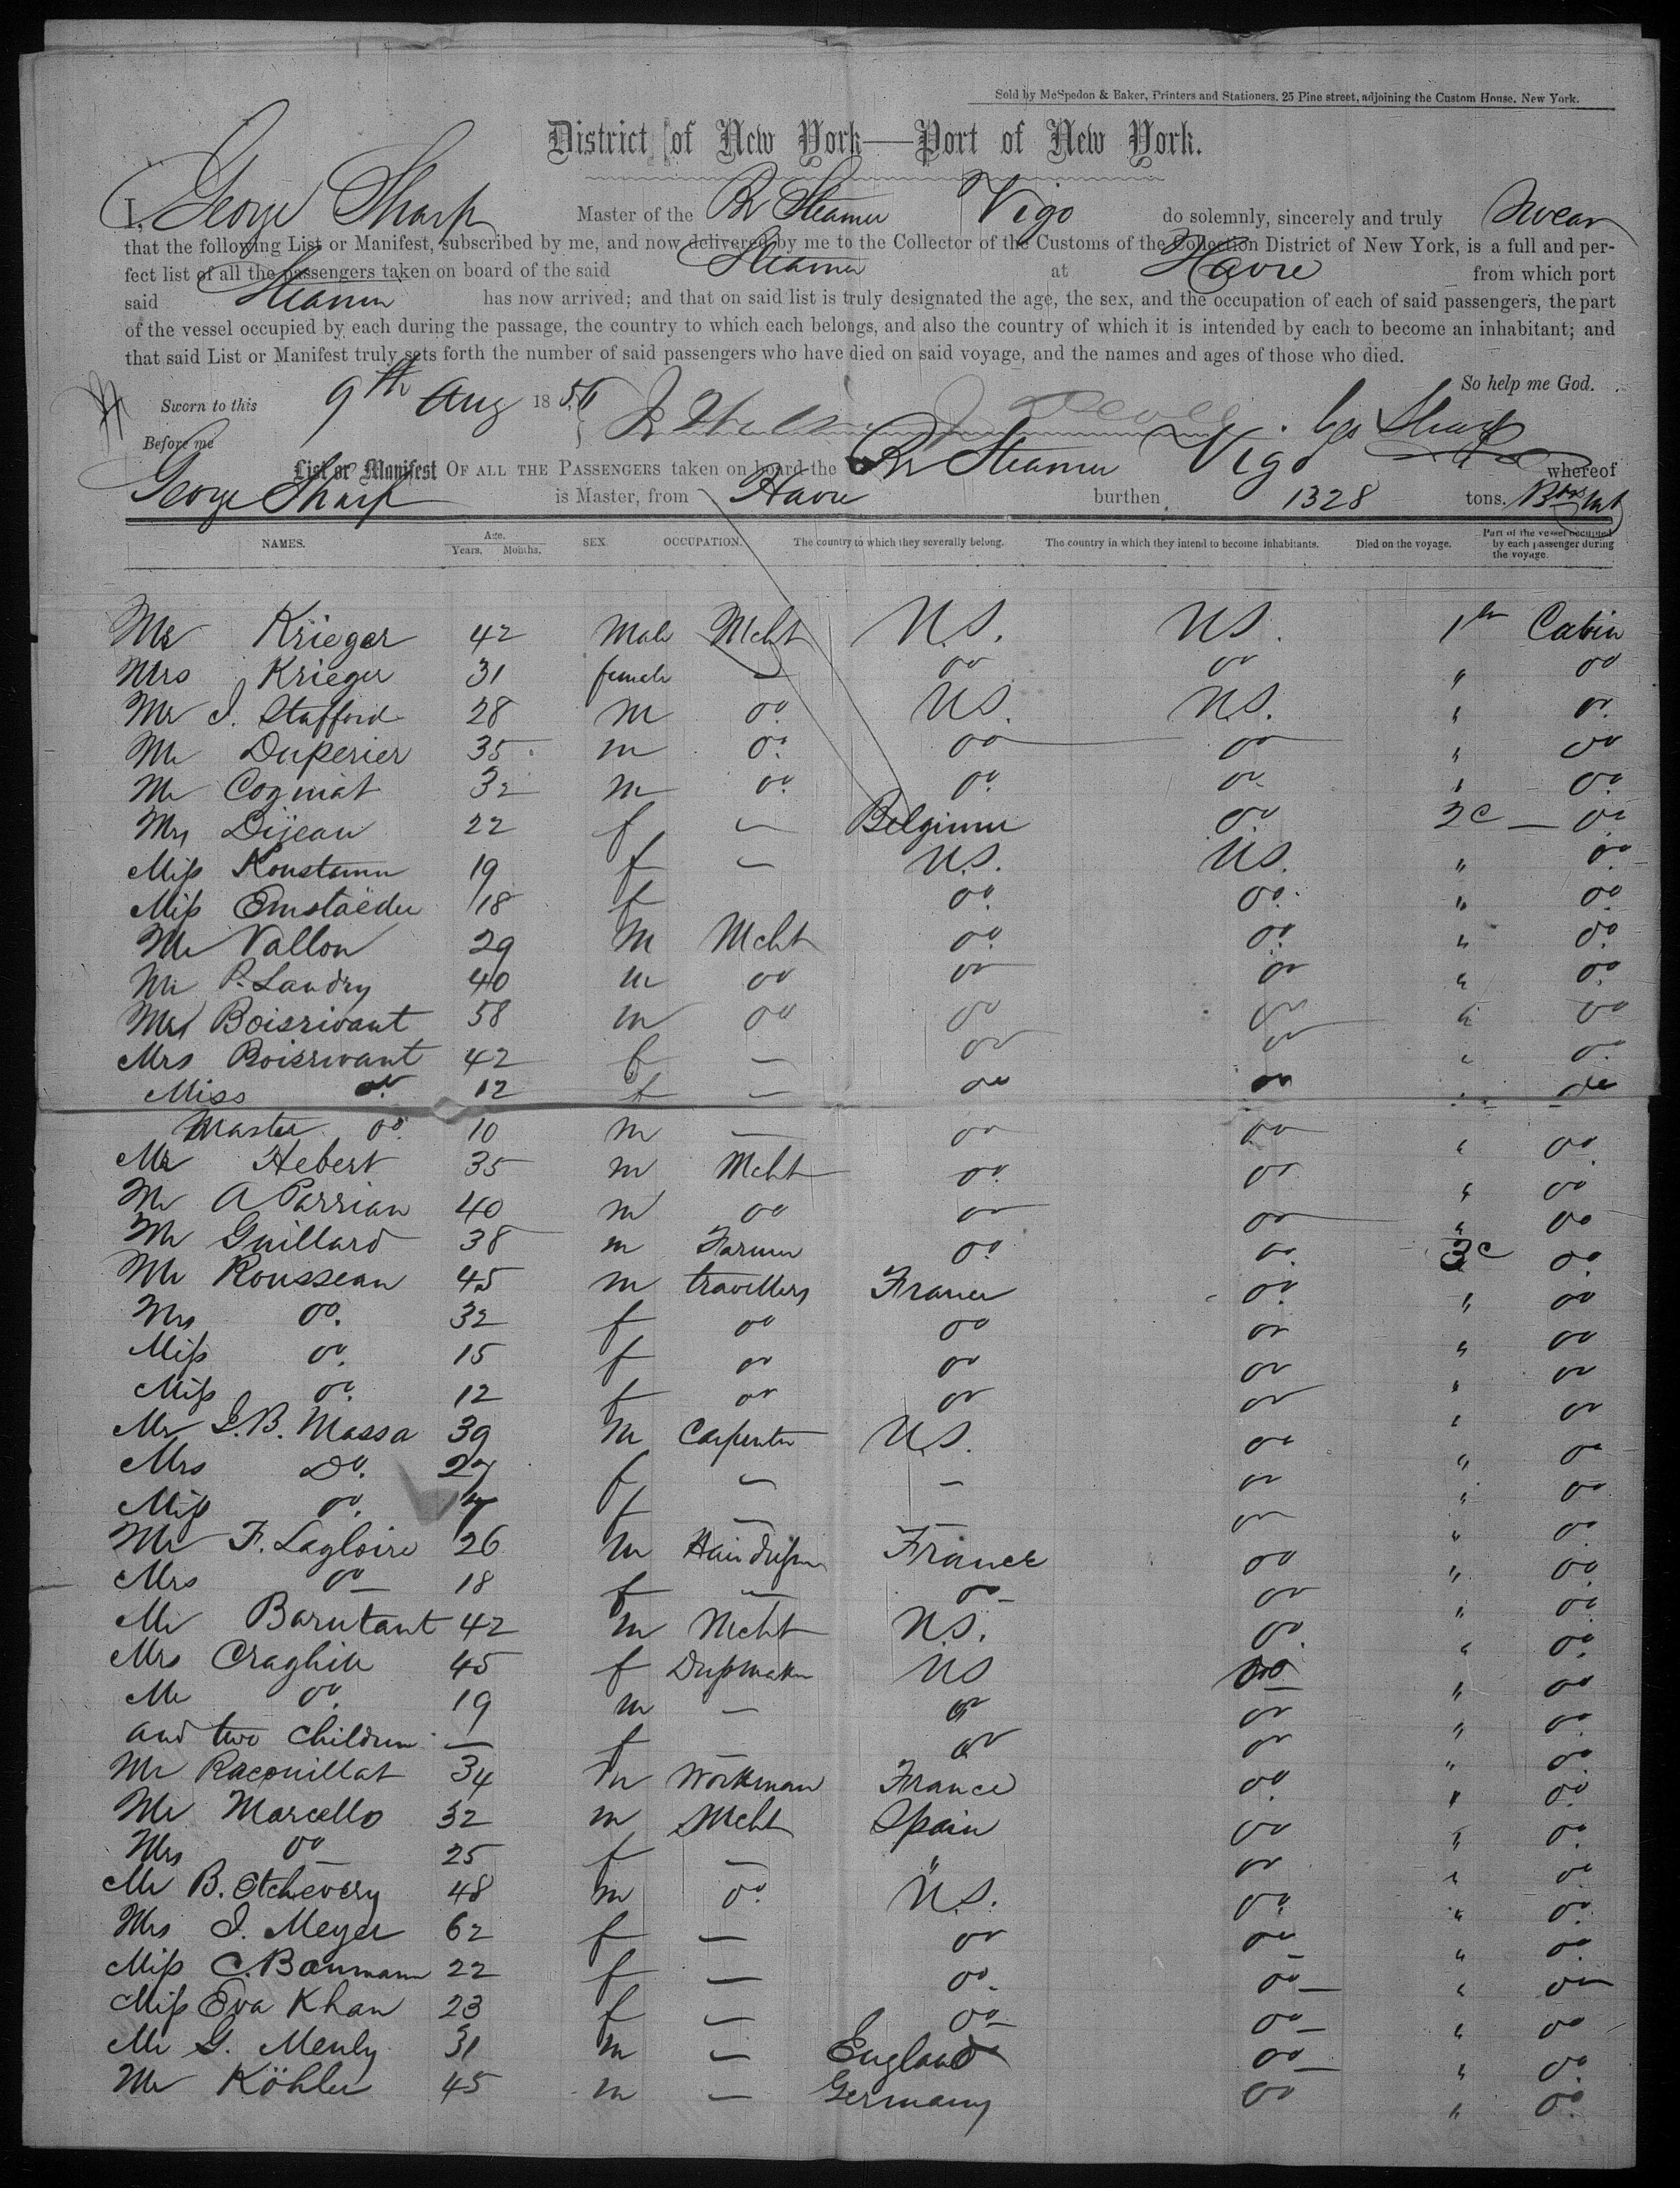 Sold by McSpedon & Baker, Printers and Stationers. 25 Pine street, adjoining the Custom House, New York.
District of New York—Port of New York.
I, George Sharp Master of the Br Steamer Vigo do solemnly, sincerely and truly swear
that the following List or Manifest, subscribed by me, and now delivered by me to the Collector of the Customs of the Collection District of New York, is a full and per-
fect list of all the passengers taken on board of the said Steamer at Havre from which port
said Steamer has now arrived; and that on said list is truly designated the age, the sex, and the occupation of each of said passengers, the part
of the vessel occupied by each during the passage, the country to which each belongs, and also the country of which it is intended by each to become an inhabitant; and
that said List or Manifest truly sets forth the number of said passengers who have died on said voyage, and the names and ages of those who died.
So help me God.
Sworn to this 9th Aug 1856
Before me Geo Sharp
List or Manifest OF ALL THE PASSENGERS taken on board the Br Steamer Vigo whereof
George Sharp is Master, from Havre burthen 1328 tons.
NAMES. Age. Years. Months. SEX. OCCUPATION. The country to which they severally belong. The country in which they intend to become inhabitants. Died on the voyage. Part of the vessel occupied by each passenger during the voyage.
Mr Krieger 42 Male Mcht U.S. US. 1st Cabin
Mrs Krieger 31 female — do do " do
Mr J. Stafford 28 m do. US. US. " do.
Mr Duperier 35 m do. do do " do
Mr Cogniat 32 m do. do. do " do.
Mrs Dijeau 22 f — Belgium do 2c — do
Miss Konstamm 19 f — U.S. US. " do
Miss Emstaëder 18 f do. do. " do
Mr Vallon 29 M Mcht do. do. " do.
Mr P. Landry 40 m do do do " do
Mr Boisrivant 58 m do do do " do
Mrs Boisrivant 42 f — do do " do.
Miss do. 12 f — do do " do
Master do. 10 m — do do " do
Mr Hebert 35 m Mcht do. do " do
Mr A Parrian 40 m do do do " do
Mr Guillard 38 m Farmer do. do. 3c do.
Mr Rousseau 45 m travellers France do. " do
Mrs do. 32 f do do do " do
Miss do. 15 f do do do " do
Miss do. 12 f do do do " do
Mr J.B. Massa 39 m Carpenter U.S. do " do
Mrs Do. 27 f — — do " do
Miss do. f — — do " do
Mr F. Lagloire 26 m Hairdresser France do " do
Mrs do — 18 f — do — do " do
Mr Barutant 42 m Mcht U.S. do. " do.
Mrs Craghin 45 f Dressmaker US do " do
Mr do. 19 m — do do " do.
and two children — f — do do " do.
Mr Racouillat 34 m Workman France do. " do.
Mr Marcello 32 m Mcht Spain do " do.
Mrs do 25 f — " do " do.
Mr B. Etchevery 48 m do. U.S. do. " do.
Mrs J. Meyer 62 f — do do " do.
Miss C. Baumann 22 f — do. do — " do
Miss Eva Khan 23 f — do — do — " do
Mr G. Menly 31 m — England do — " do.
Mr Köhler 45 m — Germany do " do.